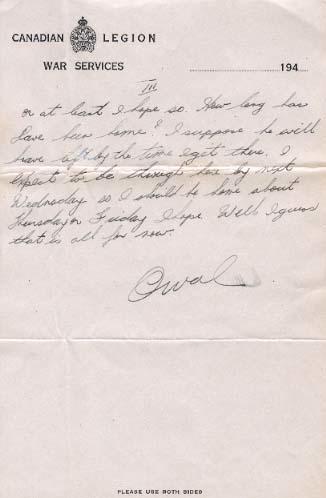 CANADIAN LEGION
WAR SERVICES
194
III
or at least I hope so. How long has
Dave been home? I suppose he will
have left by the time I get there. I
expect to be through here by next
Wednesday so I should be home about
Thursday or Friday I hope. Well I guess
that is all for now.
Orval
PLEASE USE BOTH SIDES